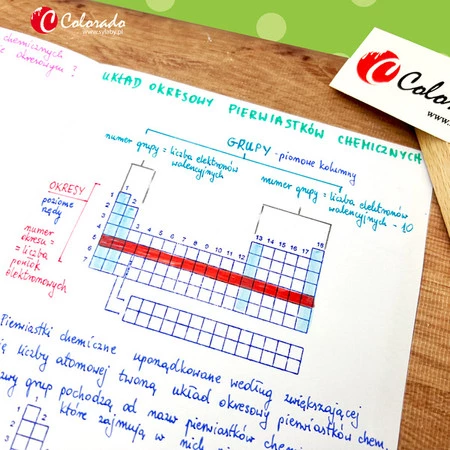 Colorado
www.sylaby.pl
chemicznych
okresowym ?
Colo
www.
UKŁAD OKRESOWY PIERWIASTKÓW CHEMICZNYCH
GRUPY - pionowe kolumny
numer grupy = liczba elektronów
walencyjnych
numer grupy = liczba elektronów
walencyjnych - 10
OKRESY
poziome
rzędy
numer
okresu =
= liczba
powłok
elektronowych
1 18
2 13 14 15 16 17
3 4 5 6 7 8 9 10 11 12
1
2
3
4
5
6
7
Pierwiastki chemiczne uporządkowane według zwiększającej
się liczby atomowej tworzą układ okresowy pierwiastków chem.
grup pochodzą od nazw pierwiastków
które zajmują w nich
1
2
3